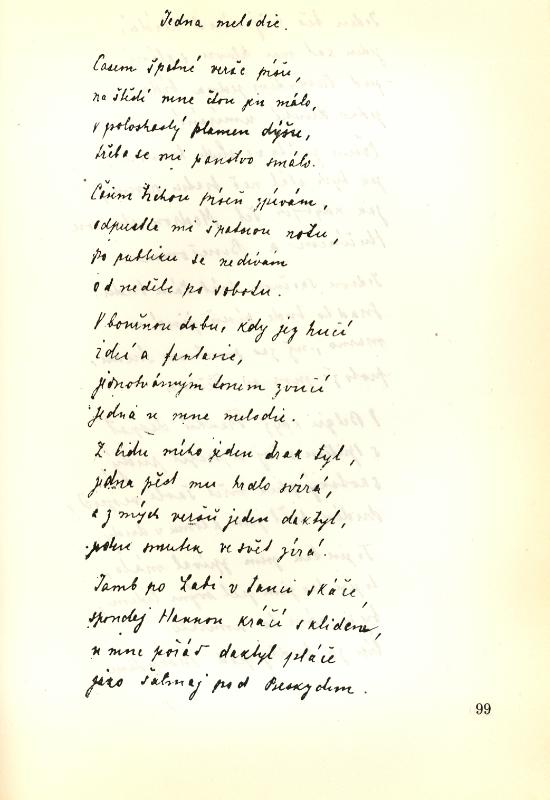 Jedna melodie.
Časem špatné verše píši,
na štěstí mne čtou jen málo,
v poloshaslý plamen dýšu,
třeba se mi panstvo smálo.
Časem tichou píseň zpívám,
odpusťte mi špatnou notu,
po publiku se nedívám
od neděle po sobotu.
V bouřnou dobu, kdy jez hučí
ideí a fantasie,
jednotvárným tonem zvučí
jedna ve mne melodie.
Z lidu mého jeden drak tyl,
jedna pěst mu hrdlo svírá,
a z mých veršů jeden daktyl,
jeden smutek ve svět zírá.
Jamb po Labi v tanci skáče,
spondej Hannou kráčí s klidem,
u mne pořád daktyl pláče
jako šalmaj pod Beskydem.
99